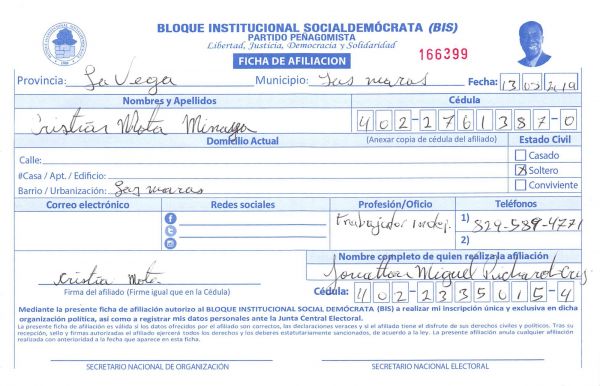 BLOQUE INSTITUCIONAL SOCIALDEMÓCRATA (BIS)
PARTIDO PEÑAGOMISTA
Libertad, Justicia, Democracia y Solidaridad
FICHA DE AFILIACION
166399
Provincia: La Vega Municipio: Las maras Fecha: 13 03 2019
Nombres y Apellidos Cédula
Cristian Mota Minaya 402-2761387-0
Domicilio Actual (Anexar copia de cédula del afiliado) Estado Civil
Calle: Casado
#Casa / Apt. / Edificio: Soltero
Barrio / Urbanización: Las maras Conviviente
Correo electrónico Redes sociales Profesión/Oficio Teléfonos
trabajador indej. 1) 829-589-4771
2)
Nombre completo de quien realiza la afiliación
Cristia Mota Jonatthan Miguel Richard Cruz
Firma del afiliado (Firme igual que en la Cédula) Cédula: 402-2335015-4
Mediante la presente ficha de afiliación autorizo al BLOQUE INSTITUCIONAL SOCIAL DEMÓCRATA (BIS) a realizar mi inscripción única y exclusiva en dicha
organización política, así como a registrar mis datos personales ante la Junta Central Electoral.
La presente ficha de afiliación es válida si los datos ofrecidos por el afiliado son correctos, las declaraciones veraces y si el afiliado tiene el disfrute de sus derechos civiles y políticos. Tras su
recepción, sello y firmas autorizadas el afiliado ejercerá todos los derechos y los deberes estatutariamente sancionados, de acuerdo a la ley. La presente afiliación anula cualquier afiliación
realizada con anterioridad a la fecha que aparece en esta ficha.
SECRETARIO NACIONAL DE ORGANIZACIÓN SECRETARIO NACIONAL ELECTORAL